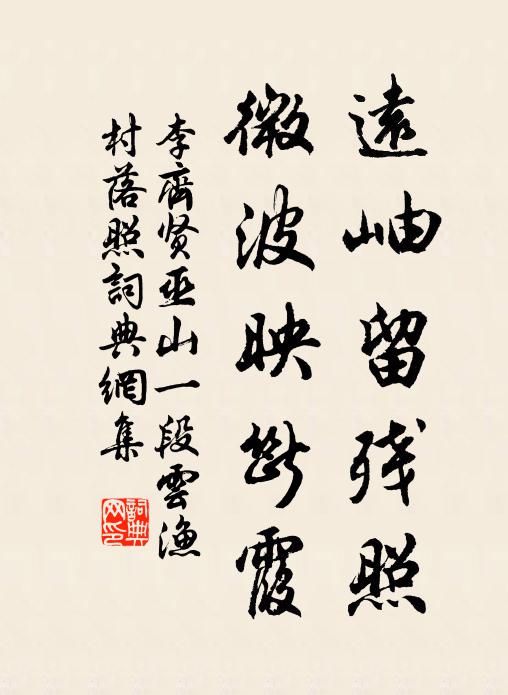 遠岫留残照
微波映斷霞
李齊贤巫山一段雲漁
村落照詞典網集
詞典
网印